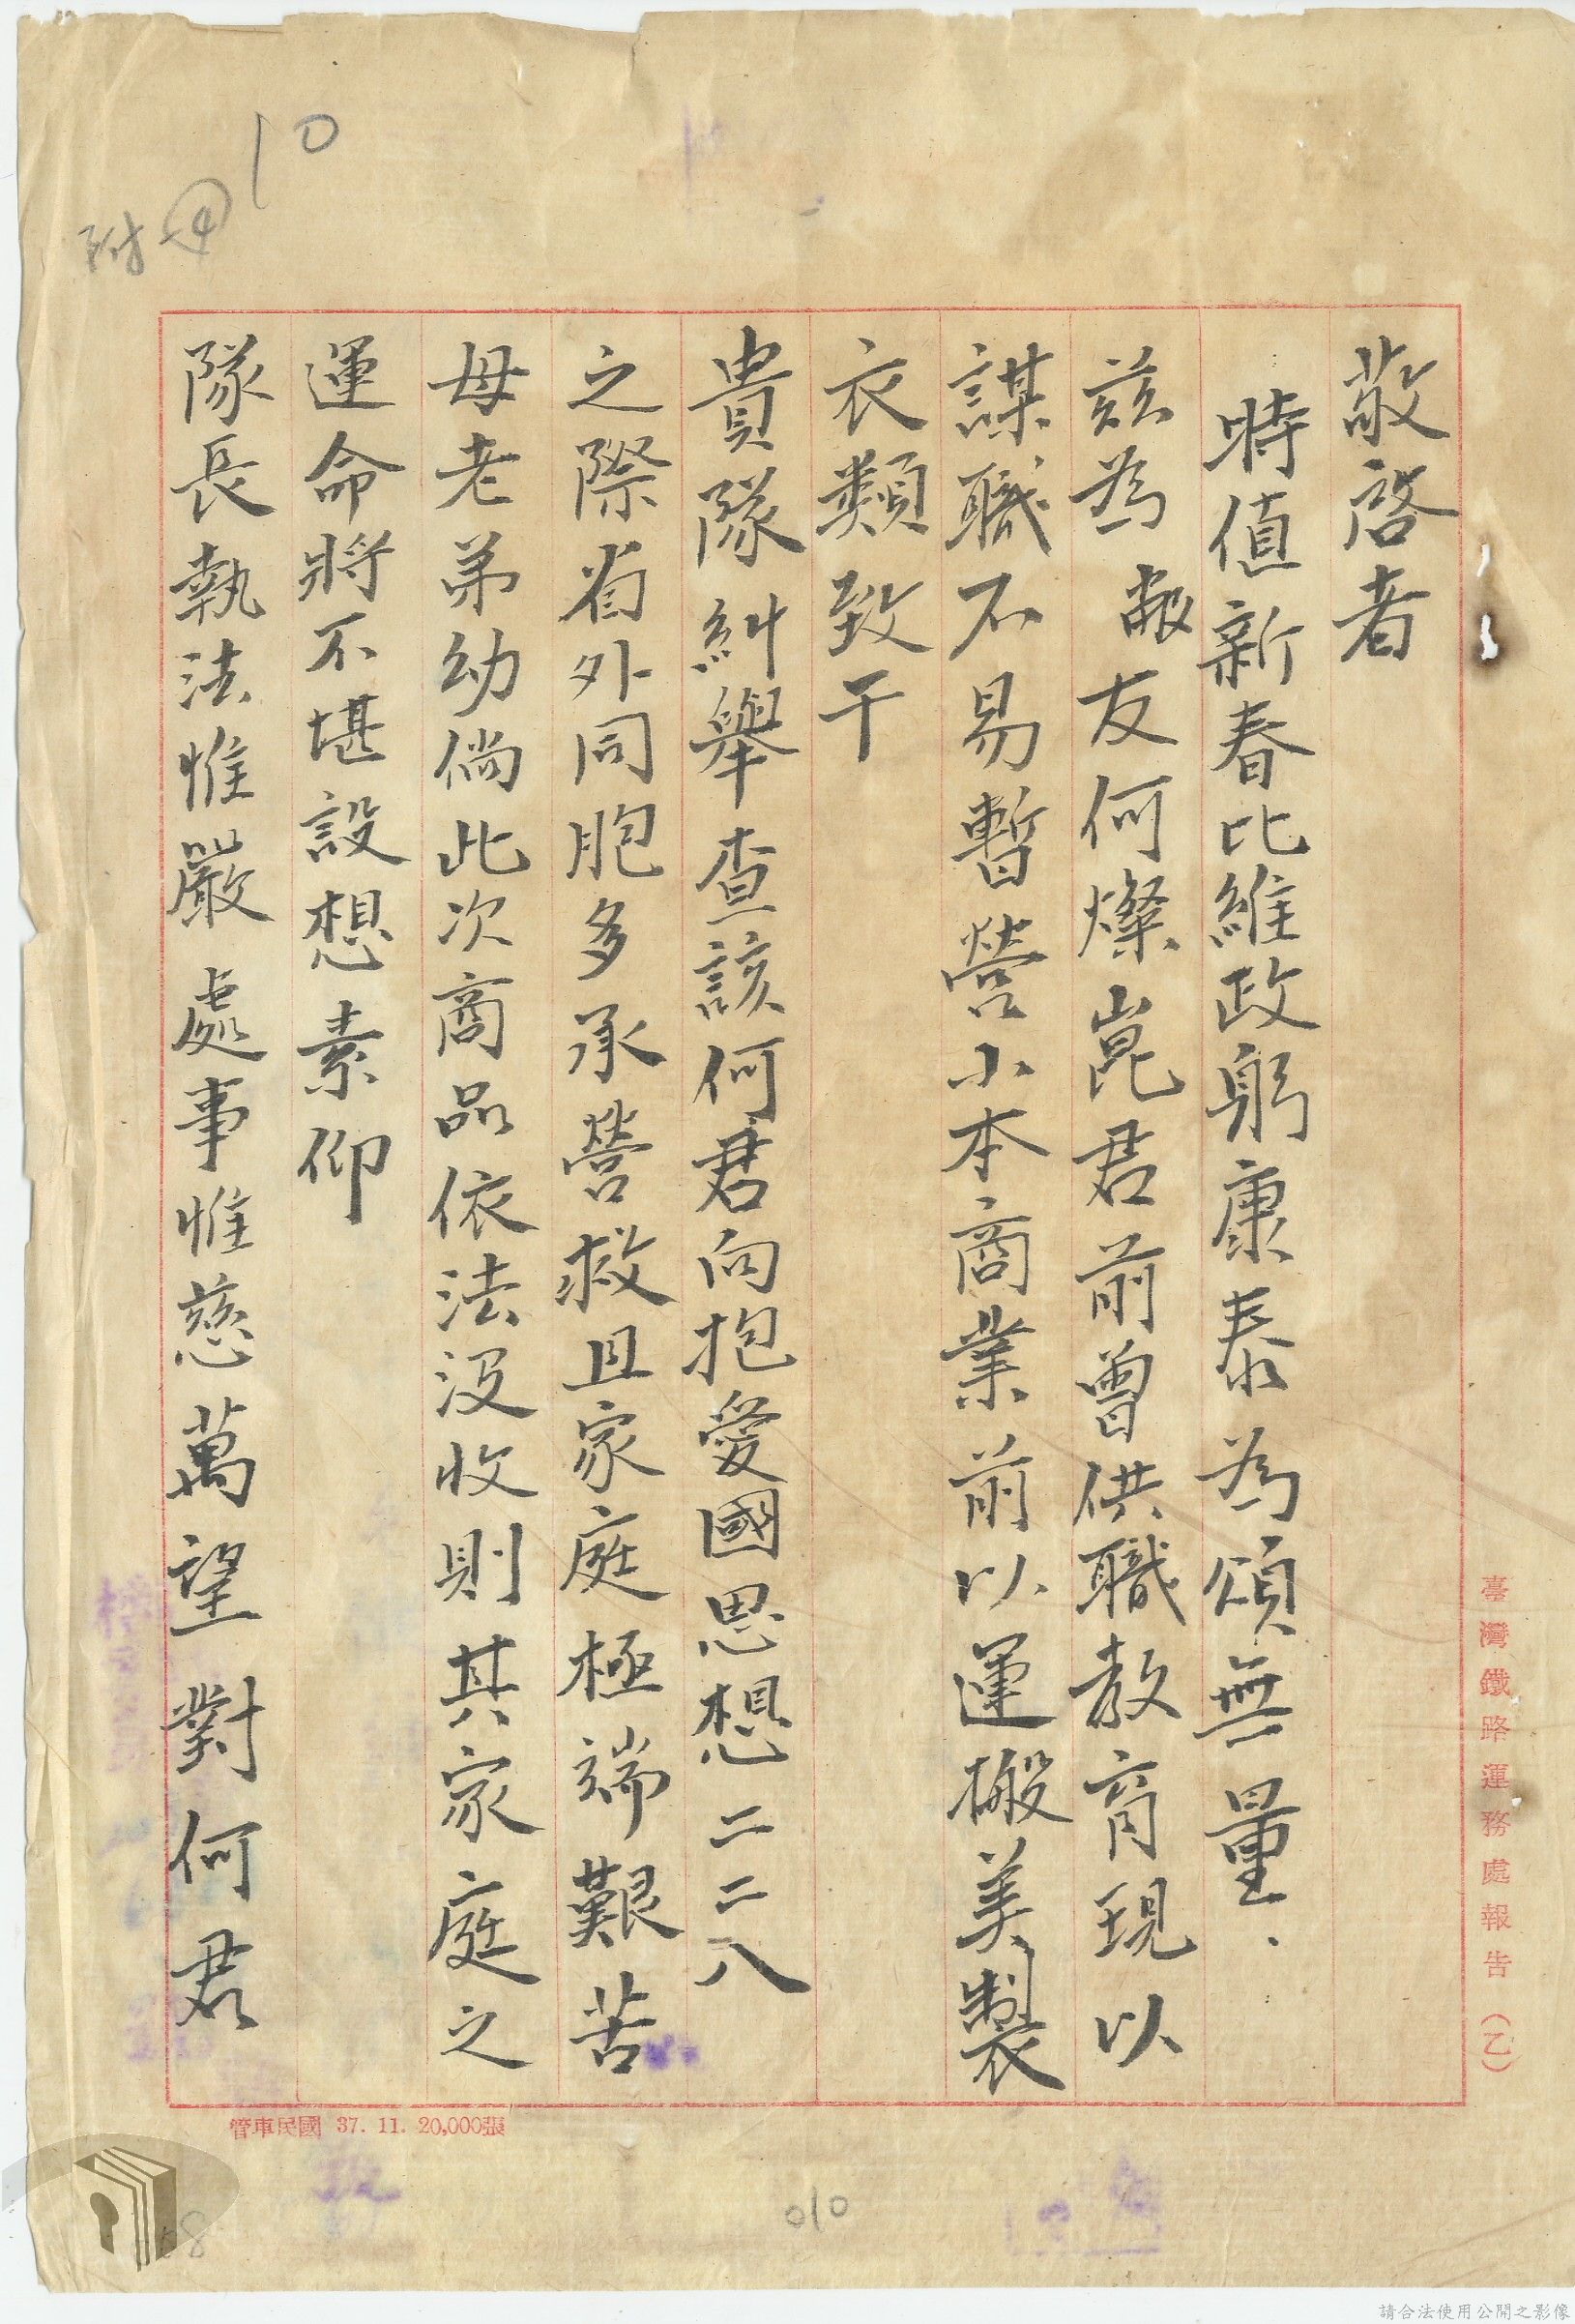 10
附一④
敬啓者
時值新春比維政躬康泰為頌無量.
茲為敝友何燦崑君前曾供職教育現以
謀職不易暫營小本商業前以運搬美製
衣類致干
貴隊糾舉查該何君向抱愛國思想二二八
之際省外同胞多承營救且家庭極端艱苦
母老弟幼倘此次商品依法沒收則其家庭之
運命將不堪設想素仰
隊長執法惟嚴處事惟慈萬望對何君
臺灣鐵路運務處報告(乙)
管車民國 37. 11. 20,000張
010
68
請合法使用公開之影像